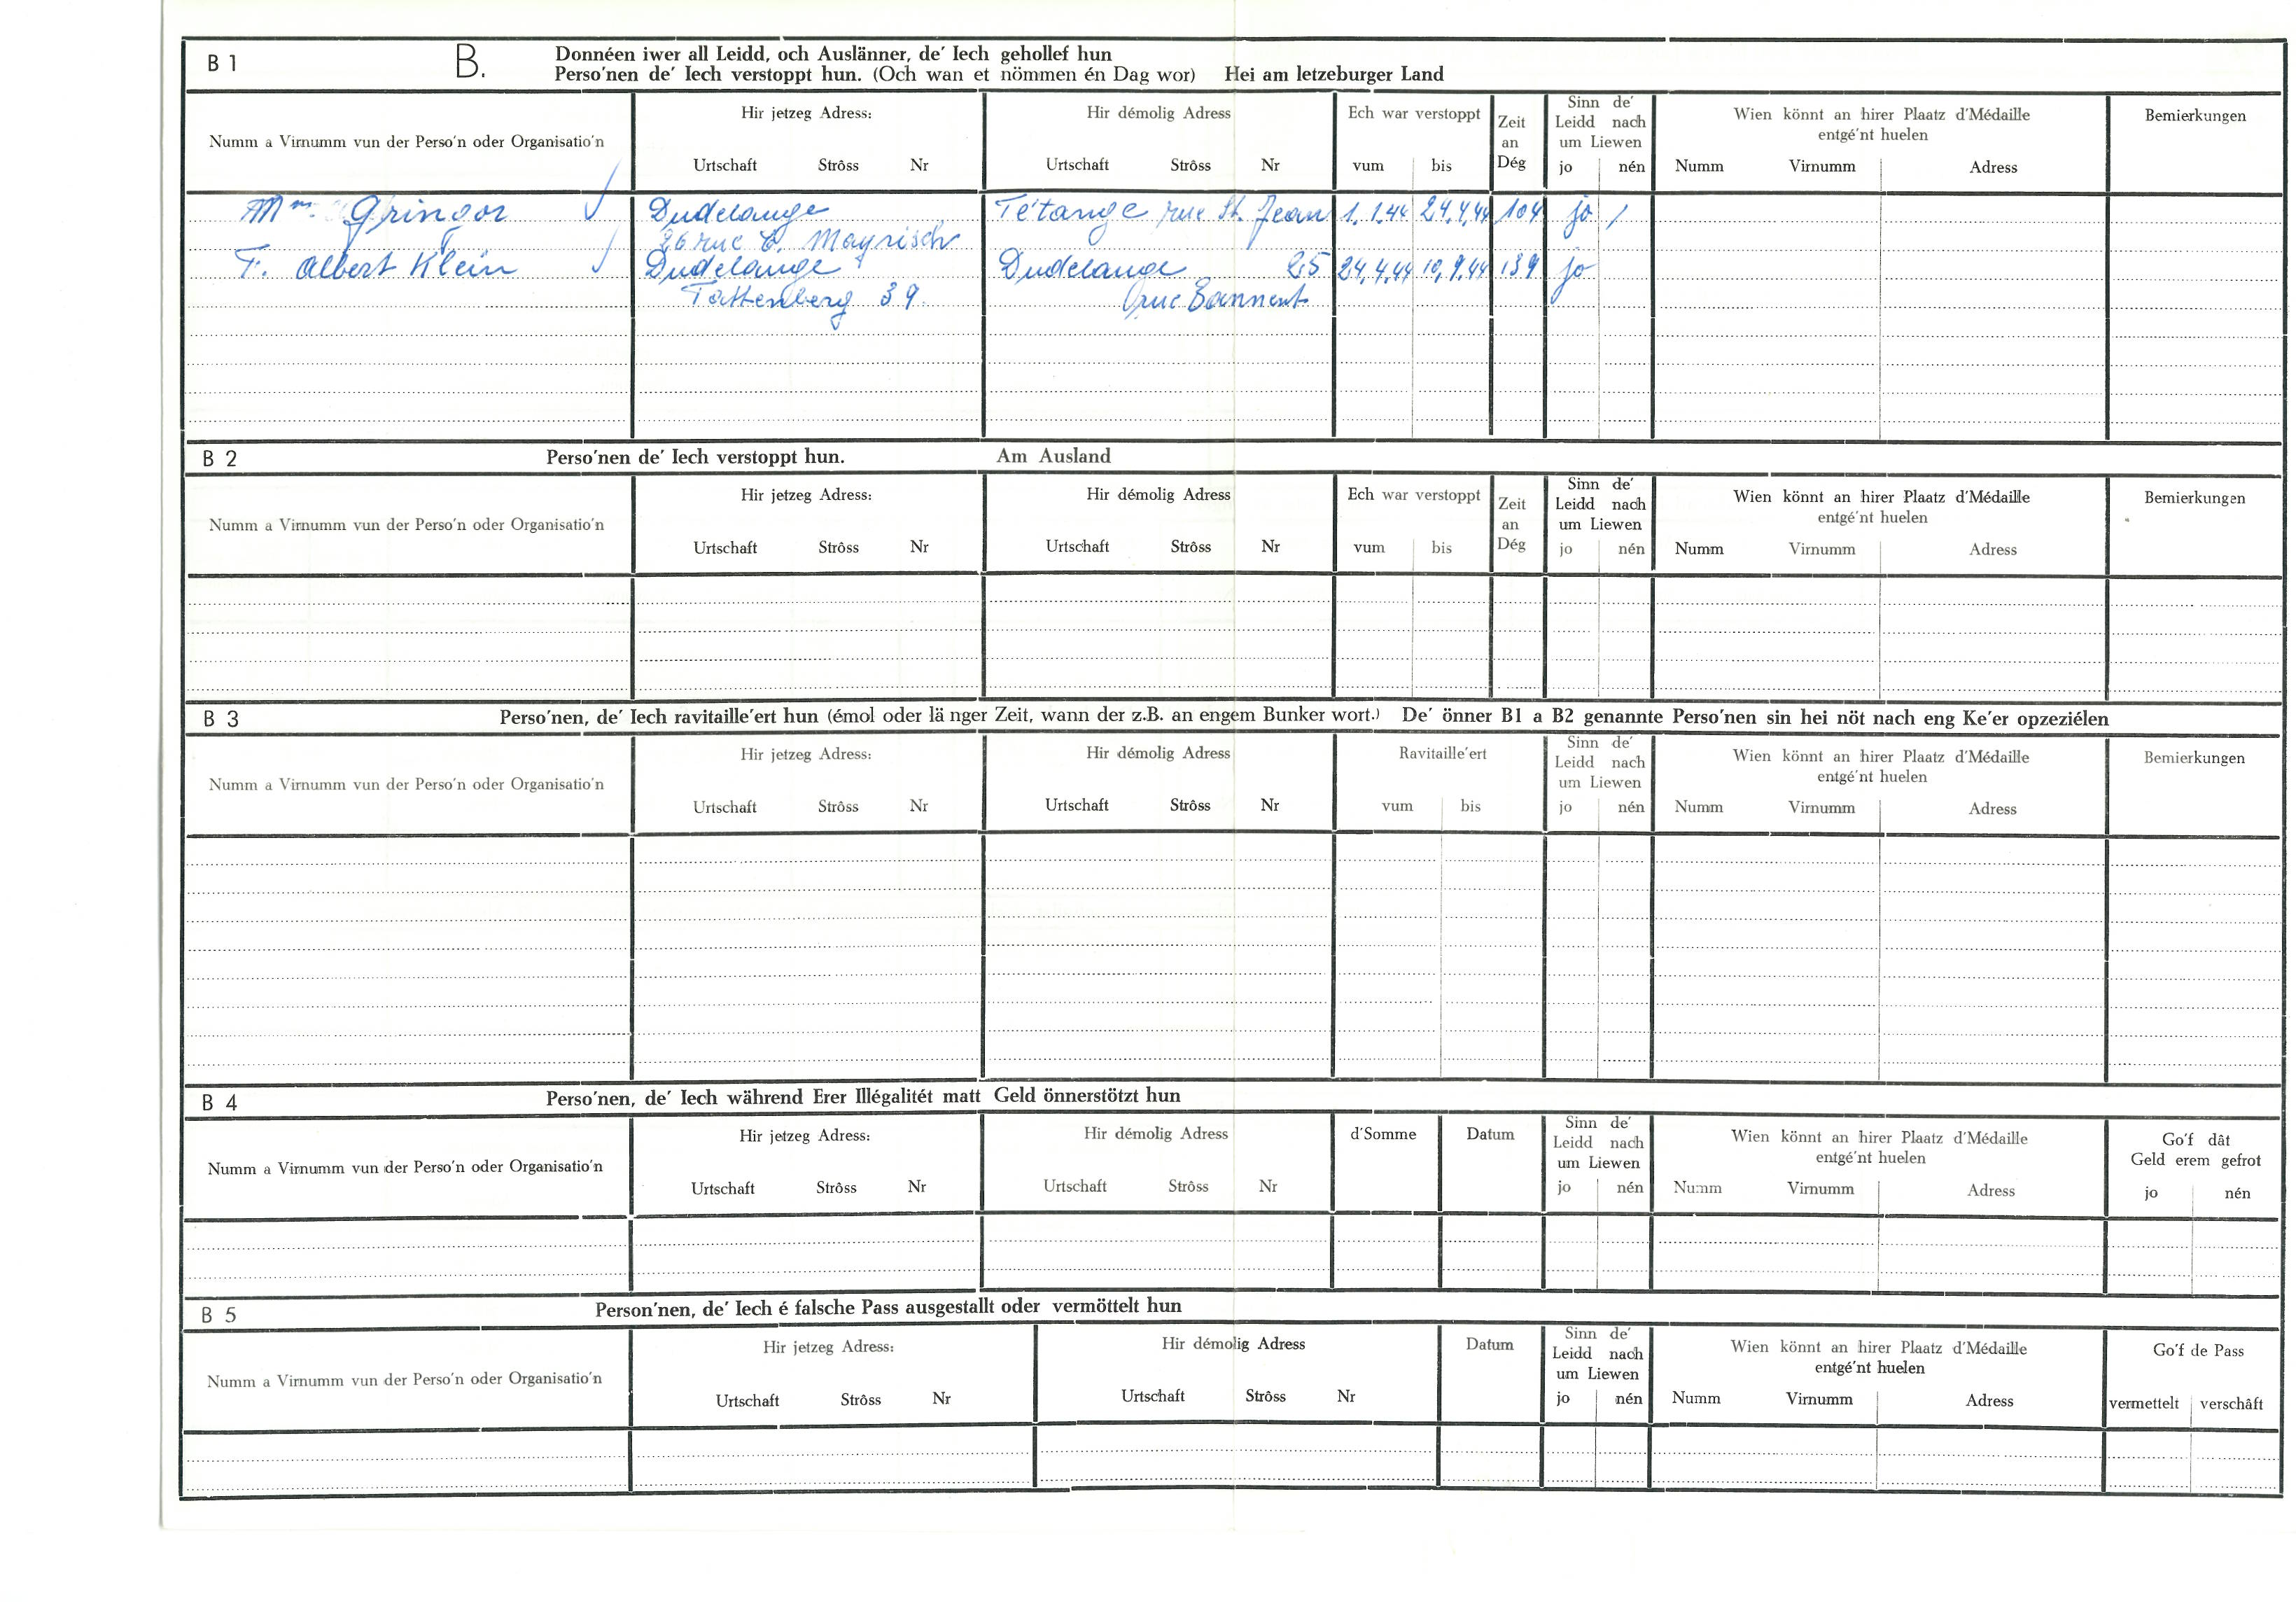 B 1 B. Donnéen iwer all Leidd, och Auslänner, de′ Iech gehollef hun
Perso′nen de′ Iech verstoppt hun. (Och wan et nömmen én Dag wor) Hei am letzeburger Land
Numm a Virnumm vun der Perso′n oder Organisatio′n
Hir jetzeg Adress:
Urtschaft Strôss Nr
Hir démolig Adress
Urtschaft Strôss Nr
Ech war verstoppt
vum bis
Zeit
an
Dég
Sinn de′
Leidd nach
um Liewen
jo nén
Wien könnt an hirer Plaatz d′Médaille
entgé′nt huelen
Numm Virnumm Adress
Bemierkungen
Mm. Gringor Dudelange Tétange rue St. Jean 1.1.44 24.4.44 104 jo /
26 rue E. Mayrisch
F. Albert Klein Dudelange Dudelange 25 24.4.44 10.9.44 139 jo
Tattenberg 39 rue Bannent
B 2 Perso′nen de′ Iech verstoppt hun. Am Ausland
Numm a Virnumm vun der Perso′n oder Organisatio′n
Hir jetzeg Adress:
Urtschaft Strôss Nr
Hir démolig Adress
Urtschaft Strôss Nr
Ech war verstoppt
vum bis
Zeit
an
Dég
Sinn de′
Leidd nach
um Liewen
jo nén
Wien könnt an hirer Plaatz d′Médaille
entgé′nt huelen
Numm Virnumm Adress
Bemierkungen
B 3 Perso′nen, de′ Iech ravitaille′ert hun (émol oder lä nger Zeit, wann der z.B. an engem Bunker wort.) De′ önner B1 a B2 genannte Perso′nen sin hei nöt nach eng Ke′er opzeziélen
Numm a Virnumm vun der Perso′n oder Organisatio′n
Hir jetzeg Adress:
Urtschaft Strôss Nr
Hir démolig Adress
Urtschaft Strôss Nr
Ravitaille′ert
vum bis
Sinn de′
Leidd nach
um Liewen
jo nén
Wien könnt an hirer Plaatz d′Médaille
entgé′nt huelen
Numm Virnumm Adress
Bemierkungen
B 4 Perso′nen, de′ Iech während Erer Illégalitét matt Geld önnerstötzt hun
Numm a Virnumm vun der Perso′n oder Organisatio′n
Hir jetzeg Adress:
Urtschaft Strôss Nr
Hir démolig Adress
Urtschaft Strôss Nr
d′Somme
Datum
Sinn de′
Leidd nach
um Liewen
jo nén
Wien könnt an hirer Plaatz d′Médaille
entgé′nt huelen
Numm Virnumm Adress
Go′f dât
Geld erem gefrot
jo nén
B 5 Person′nen, de′ Iech é falsche Pass ausgestallt oder vermöttelt hun
Numm a Virnumm vun der Perso′n oder Organisatio′n
Hir jetzeg Adress:
Urtschaft Strôss Nr
Hir démolig Adress
Urtschaft Strôss Nr
Datum
Sinn de′
Leidd nach
um Liewen
jo nén
Wien könnt an hirer Plaatz d′Médaille
entgé′nt huelen
Numm Virnumm Adress
Go′f de Pass
vermettelt verschâft